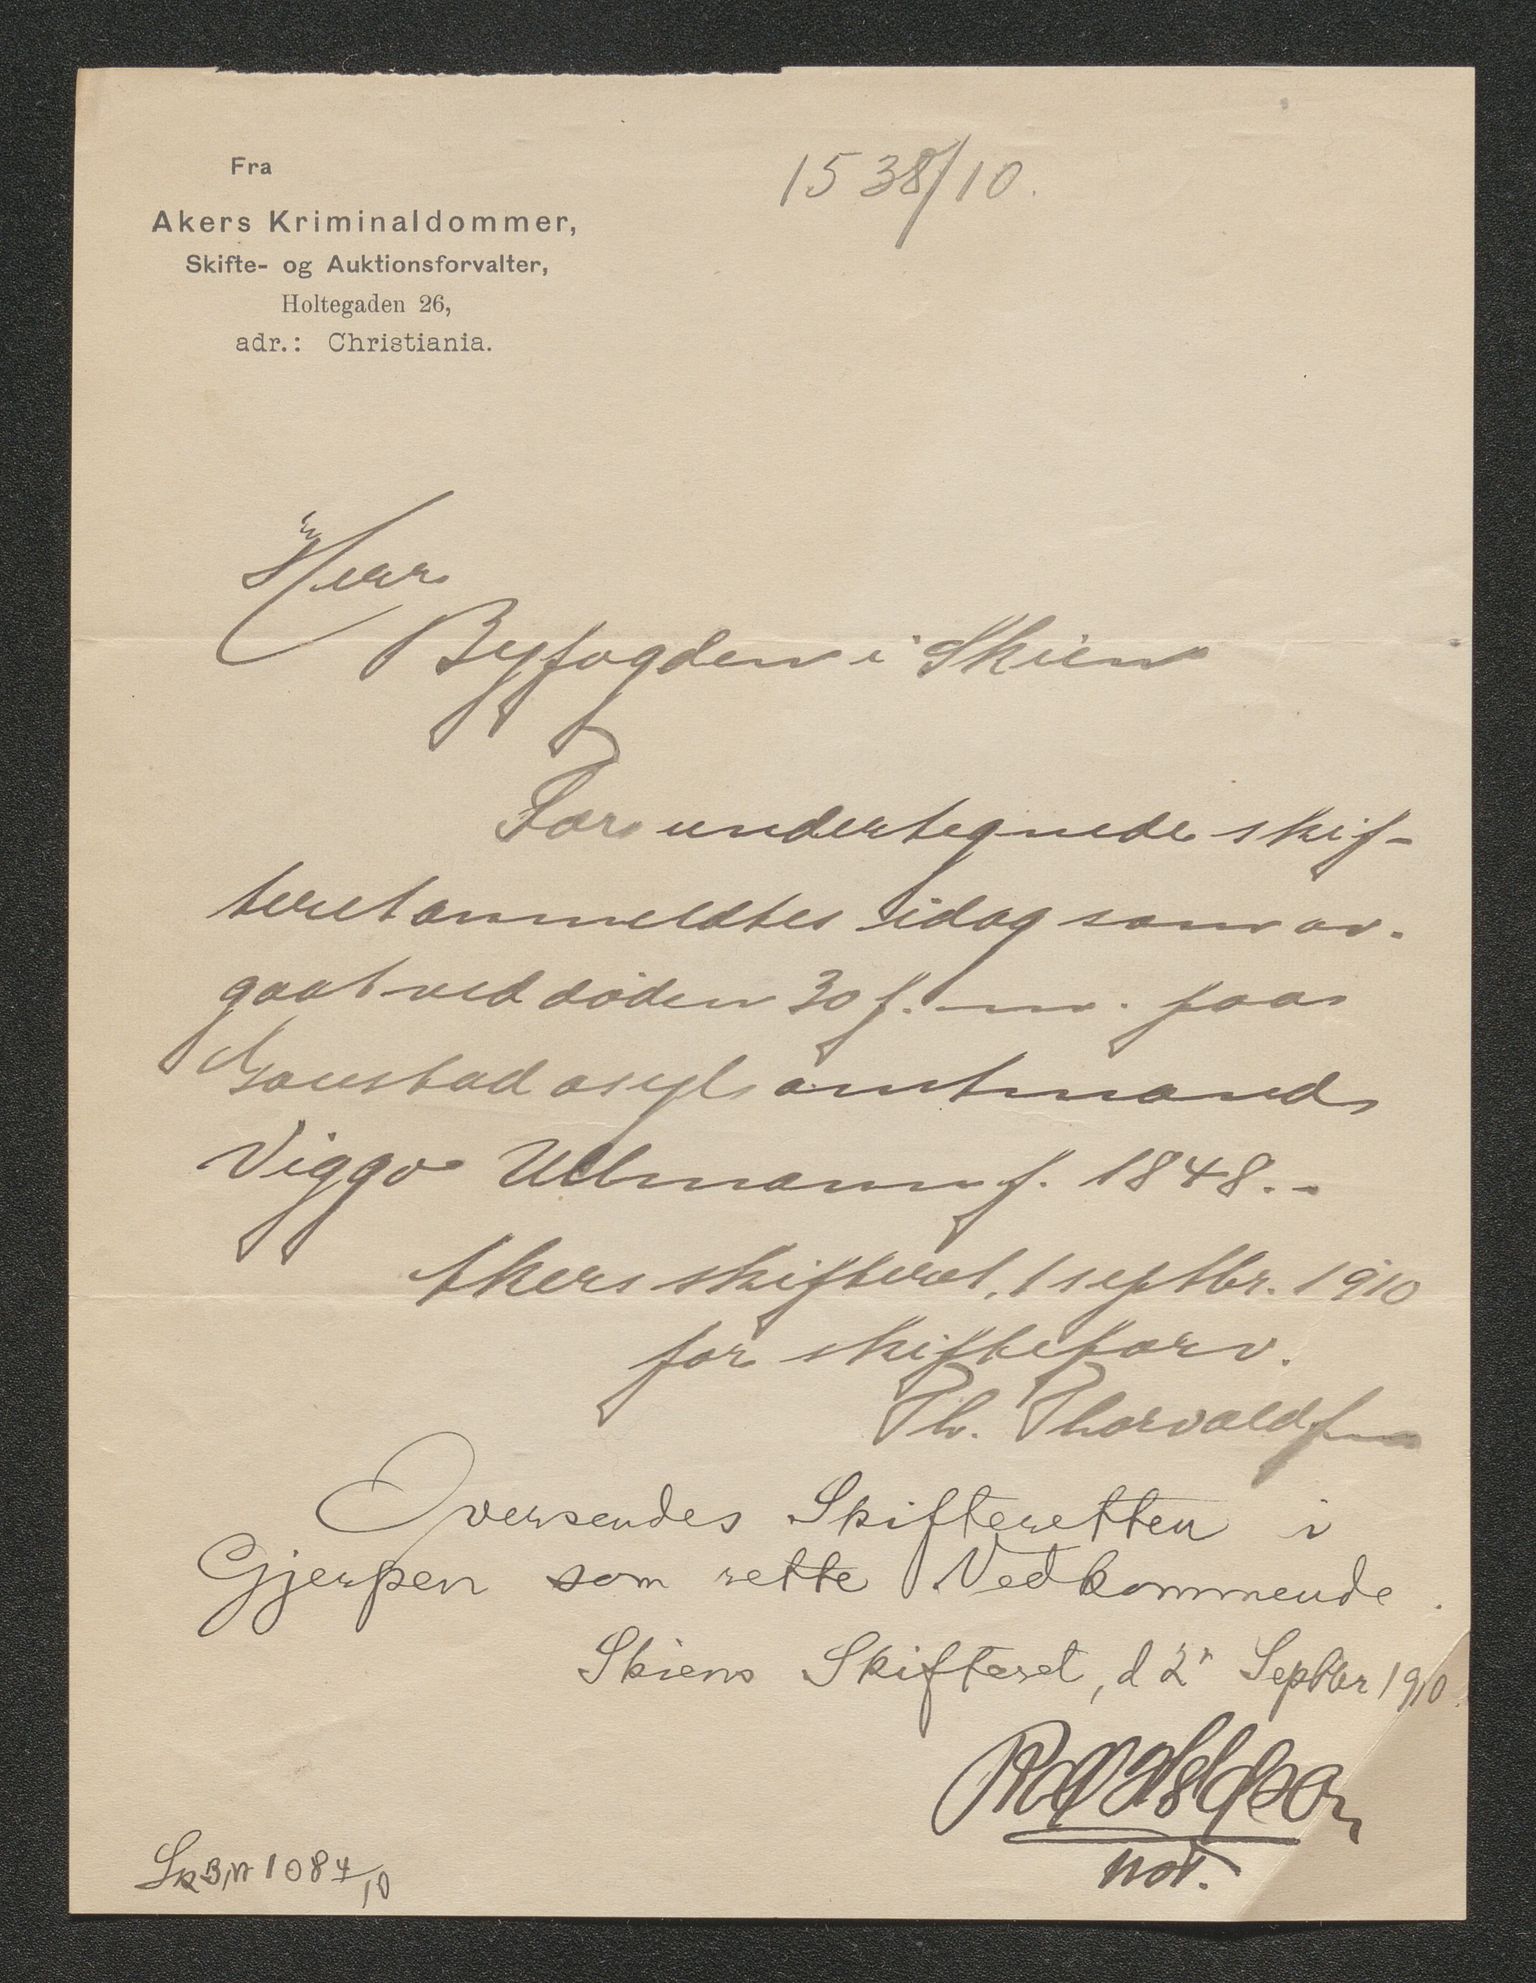 Fra
Akers Kriminaldommer,
Skifte- og Auktionsforvalter,
Holtegaden 26,
adr.: Christiania.
1538/10.
Herr
Byfogden i Skien
For undertegnede skif-
teret anmeldtes idag som av-
gaat ved døden 30 f. m. paa
Gaustad asyl amtmand
Viggo Ullmann f. 1848. -
Akers skifteret, 1 septbr. 1910
for skifteforv.
Th. Thorvaldsen
Oversendes Skifteretten i
Gjerpen som rette Vedkommende.
Skiens Skifteret, d 2n Septbr 1910.
not.
1084/10